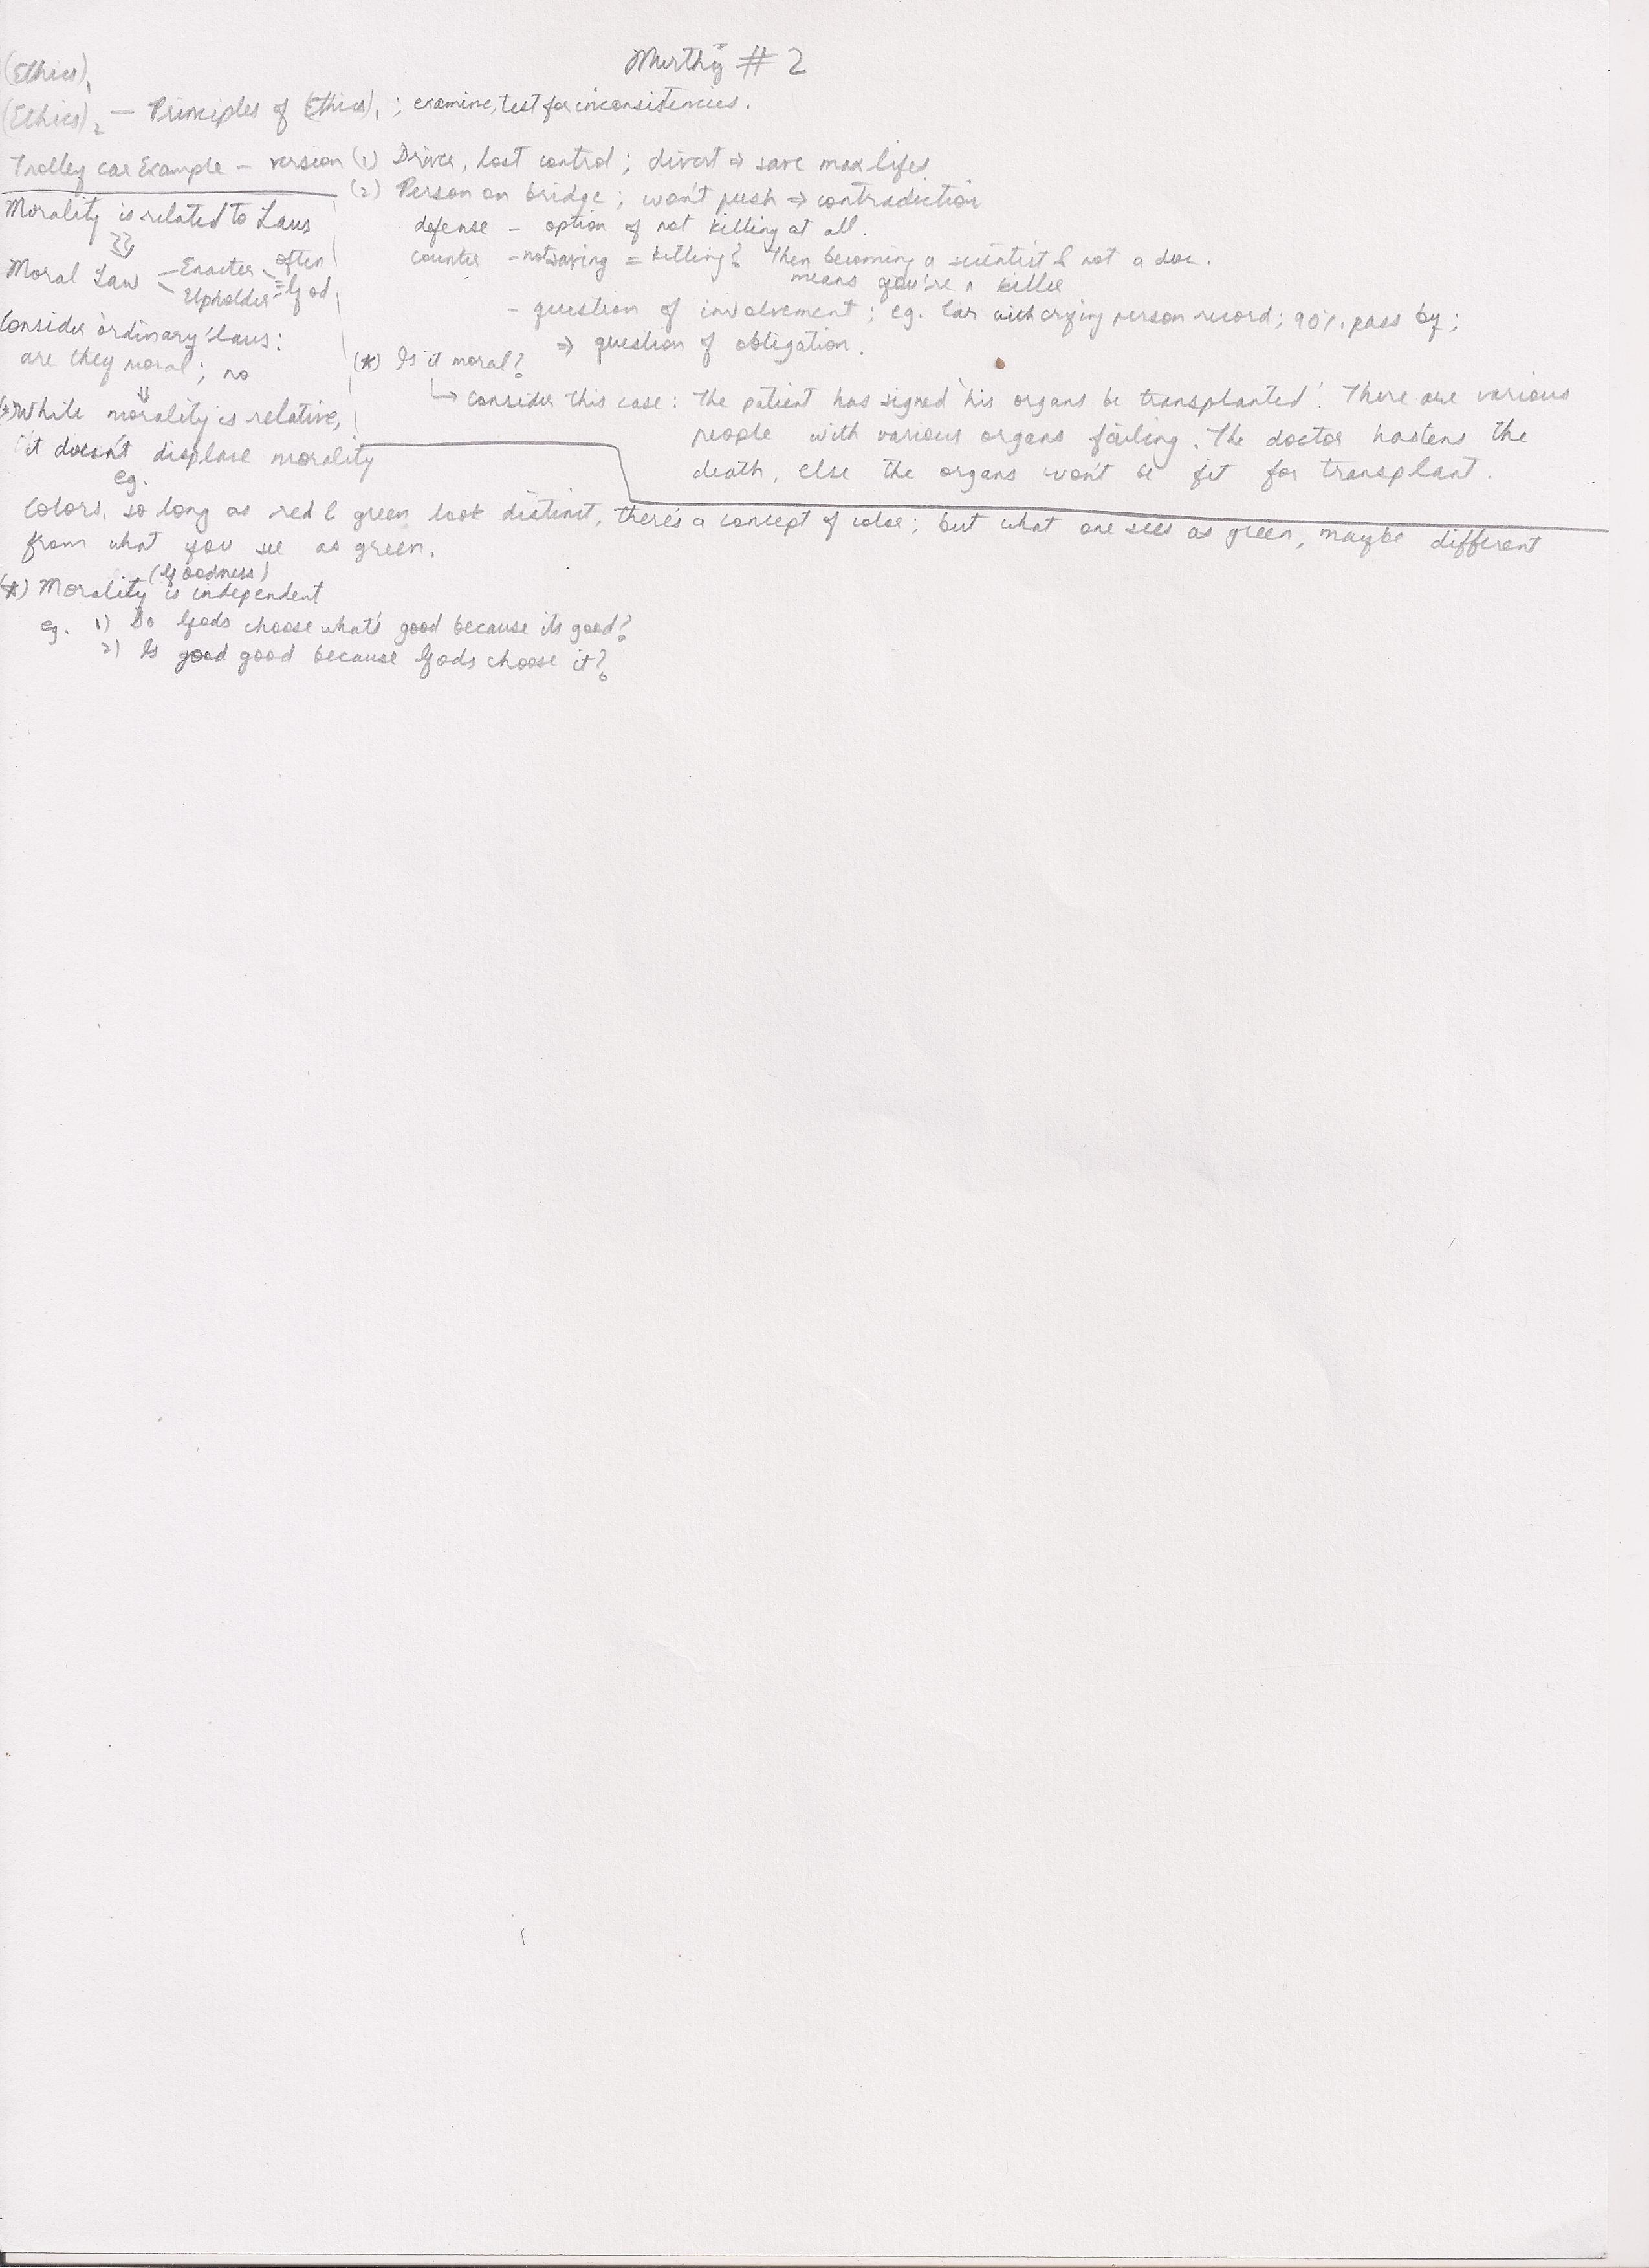 Murthy # 2
(Ethics)₁
(Ethics)₂ — Principles of (Ethics)₁ ; examine, test for inconsistencies.
Trolley car Example – version (1) Driver, lost control ; divert ⇒ save max lifes
(2) Person on bridge ; won't push ⇒ contradiction
defense – option of not killing at all.
counter – not saving = killing? Then becoming a scientist & not a doc.
means you're a killer
– question of involvement ; eg. Car with crying person record ; 90% pass by ;
⇒ question of obligation.
(*) Is it moral?
↳ Consider this case : The patient has signed 'his organs be transplanted'. There are various
people with various organs failing. The doctor hastens the
death, else the organs won't be fit for transplant.
Morality is related to Laws
Moral Law – Enacter often
Upholder = God
Consider ordinary laws :
are they moral ; no
⇓
(*) While morality is relative,
it doesn't displace morality
eg.
Colors, so long as red & green look distinct, there's a concept of color ; but what one sees as green, maybe different
from what you see as green.
(Goodness)
(*) Morality is independent
eg. 1) Do Gods choose what's good because its good?
2) Is good good because Gods choose it?